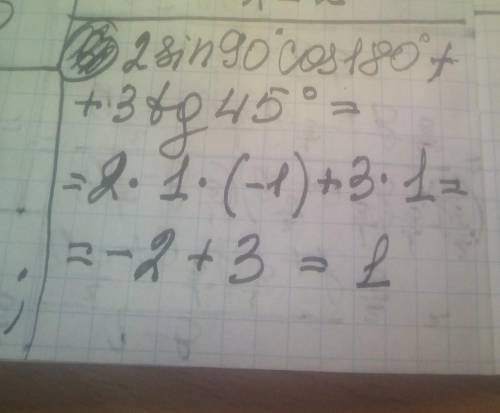 2sin90°cos180°+
+3tg45°=
=2·1·(-1)+3·1=
=-2+3=1
;